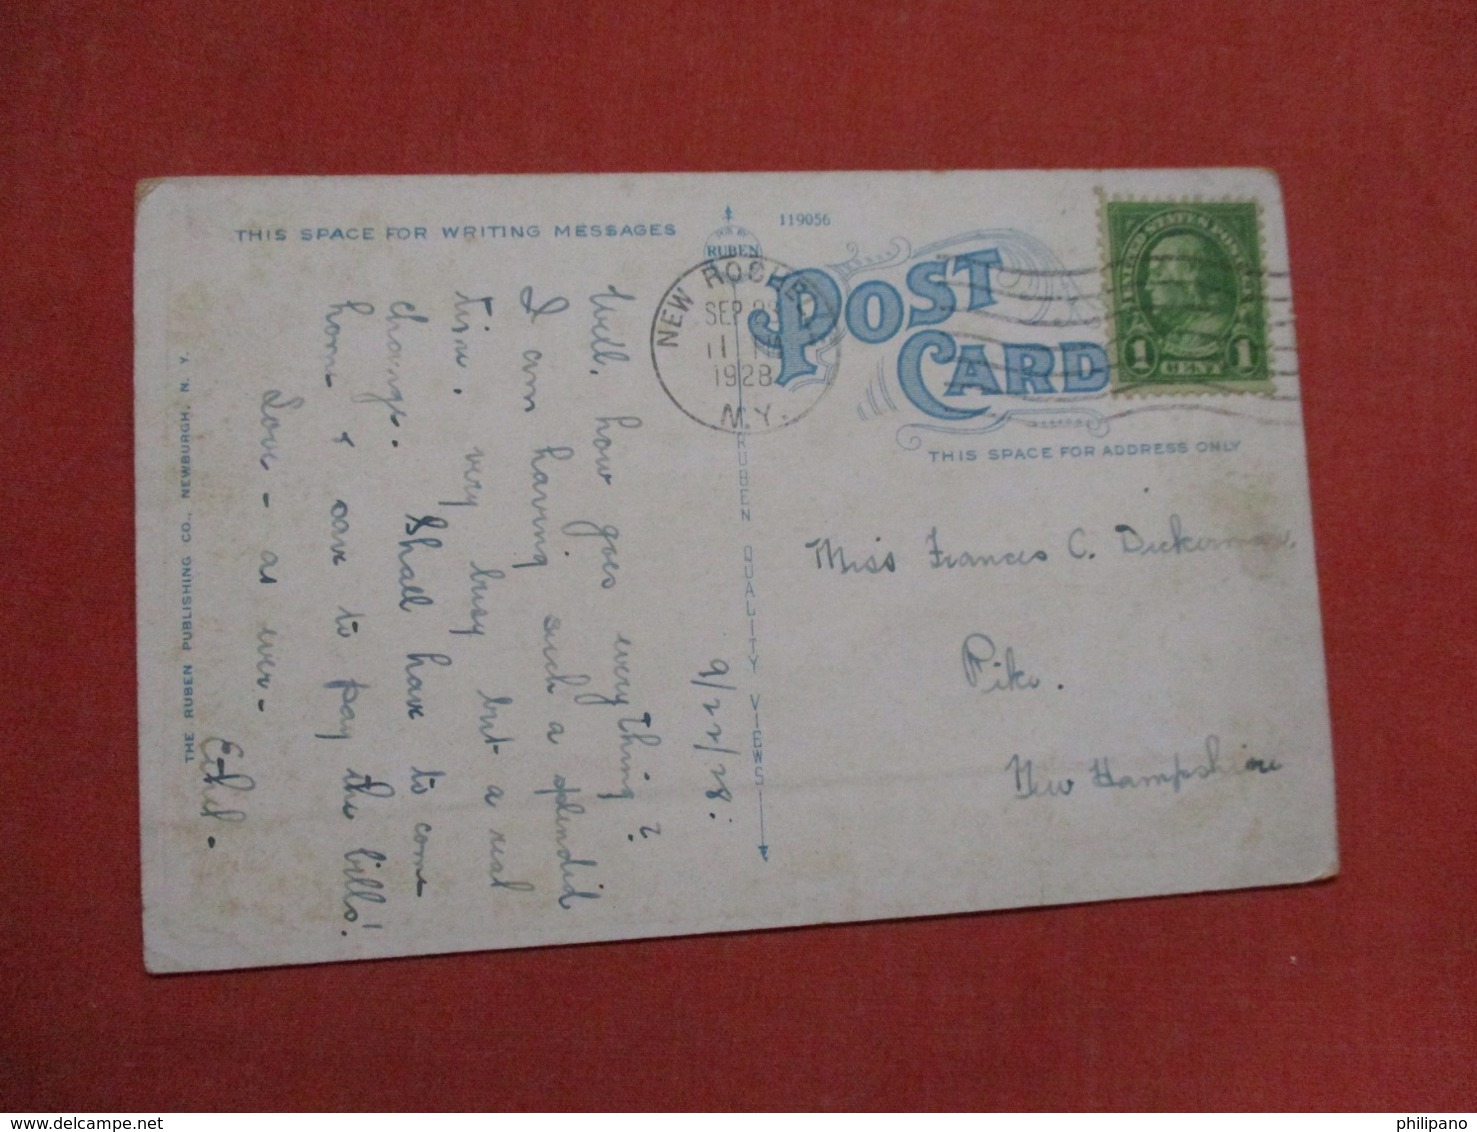 THIS SPACE FOR WRITING MESSAGES
9/22/28.
Well, how goes everything?
I am having such a splendid
time. very busy but a real
change. Shall have to come
home & save to pay the bills!
Love - as ever -
Ethel.
THE RUBEN PUBLISHING CO., NEWBURGH, N. Y.
PUB BY
RUBEN
RUBEN QUALITY VIEWS
119056
POST
CARD
THIS SPACE FOR ADDRESS ONLY
NEW ROCHELLE
SEP
11
1928
N.Y.
UNITED STATES POSTAGE
1 CENT 1
Miss Frances C. Dickerman.
Pike.
New Hampshire
philipano